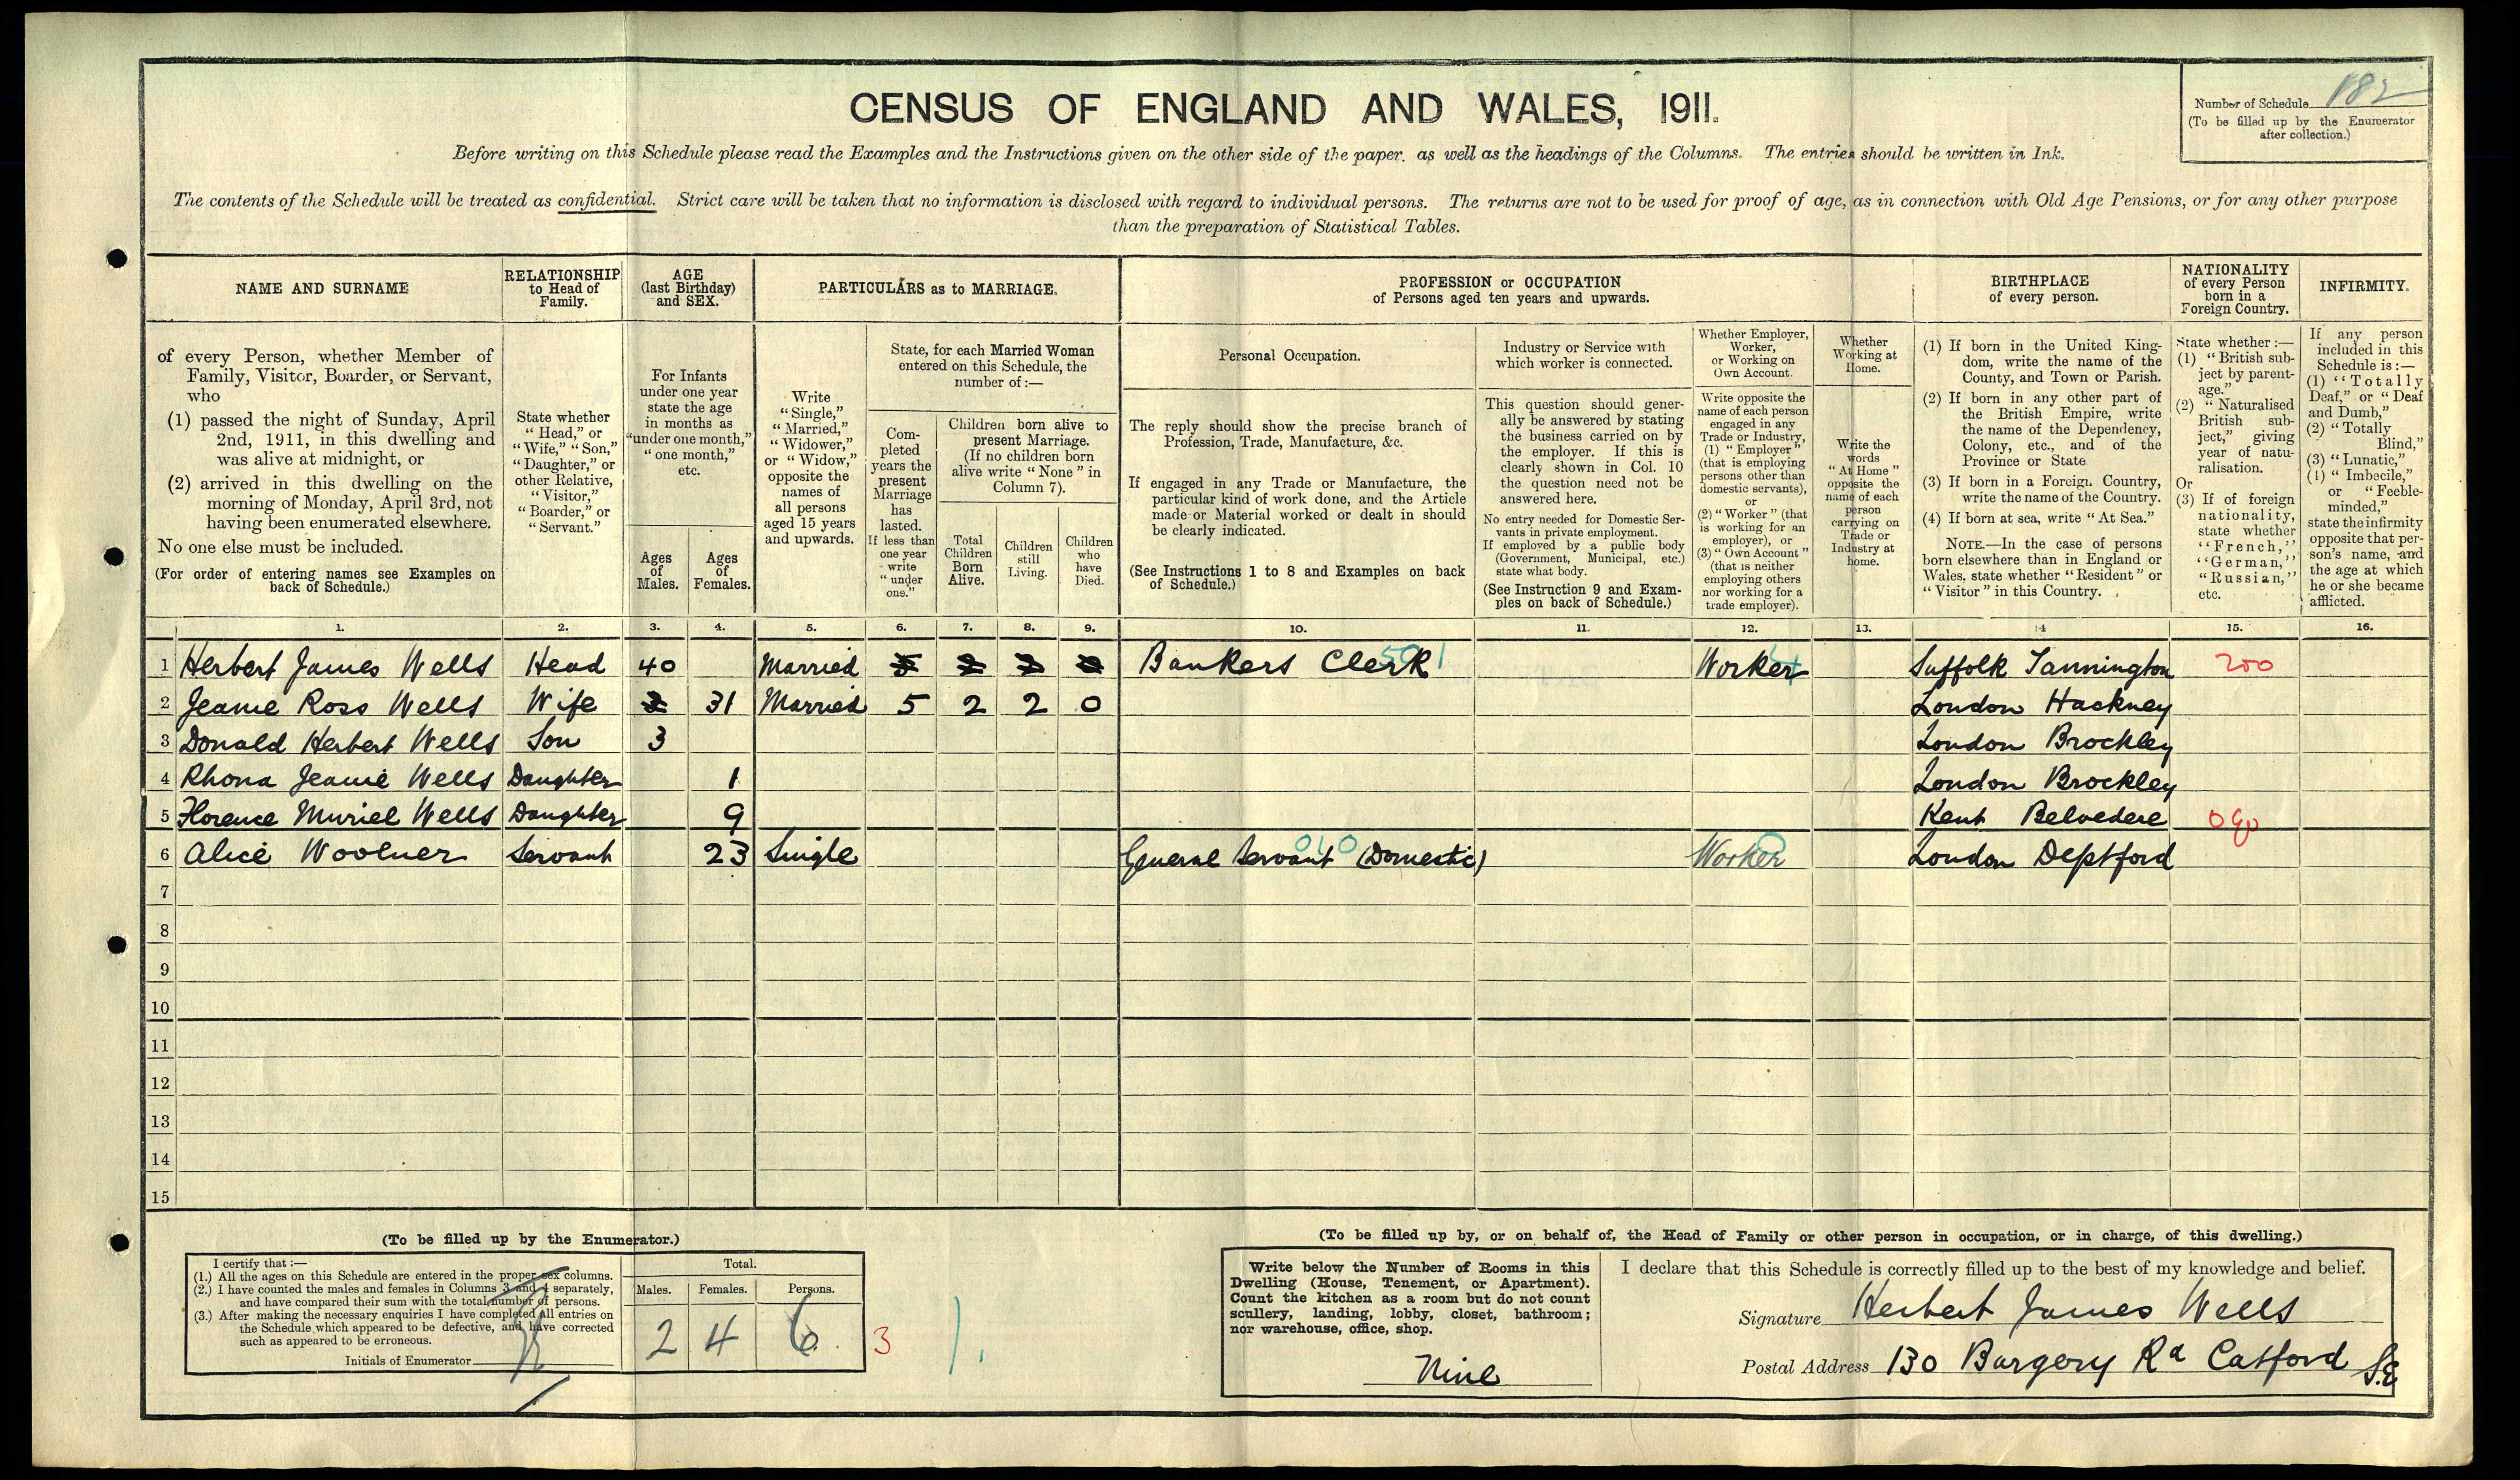 CENSUS OF ENGLAND AND WALES, 1911.
Number of Schedule 182
(To be filled up by the Enumerator
after collection.)
Before writing on this Schedule please read the Examples and the Instructions given on the other side of the paper, as well as the headings of the Columns. The entries should be written in Ink.
The contents of the Schedule will be treated as confidential. Strict care will be taken that no information is disclosed with regard to individual persons. The returns are not to be used for proof of age, as in connection with Old Age Pensions, or for any other purpose
than the preparation of Statistical Tables.
NAME AND SURNAME
of every Person, whether Member of
Family, Visitor, Boarder, or Servant,
who
(1) passed the night of Sunday, April
2nd, 1911, in this dwelling and
was alive at midnight, or
(2) arrived in this dwelling on the
morning of Monday, April 3rd, not
having been enumerated elsewhere.
No one else must be included.
(For order of entering names see Examples on
back of Schedule.)
RELATIONSHIP
to Head of
Family.
State whether
"Head," or
"Wife," "Son,"
"Daughter," or
other Relative,
"Visitor,"
"Boarder," or
"Servant."
AGE
(last Birthday)
and SEX.
For Infants
under one year
state the age
in months as
"under one month,"
"one month,"
etc.
Ages
of
Males.
Ages
of
Females.
PARTICULARS as to MARRIAGE.
Write
"Single,"
"Married,"
"Widower,"
or "Widow,"
opposite the
names of
all persons
aged 15 years
and upwards.
State, for each Married Woman
entered on this Schedule, the
number of:—
Com-
pleted
years the
present
Marriage
has
lasted.
If less than
one year
write
"under
one."
Children born alive to
present Marriage.
(If no children born
alive write "None" in
Column 7).
Total
Children
Born
Alive.
Children
still
Living.
Children
who
have
Died.
PROFESSION or OCCUPATION
of Persons aged ten years and upwards.
Personal Occupation.
The reply should show the precise branch of
Profession, Trade, Manufacture, &c.
If engaged in any Trade or Manufacture, the
particular kind of work done, and the Article
made or Material worked or dealt in should
be clearly indicated.
(See Instructions 1 to 8 and Examples on back
of Schedule.)
Industry or Service with
which worker is connected.
This question should gener-
ally be answered by stating
the business carried on by
the employer. If this is
clearly shown in Col. 10
the question need not be
answered here.
No entry needed for Domestic Ser-
vants in private employment.
If employed by a public body
(Government, Municipal, etc.)
state what body.
(See Instruction 9 and Exam-
ples on back of Schedule.)
Whether Employer,
Worker,
or Working on
Own Account.
Write opposite the
name of each person
engaged in any
Trade or Industry,
(1) "Employer"
(that is employing
persons other than
domestic servants),
or
(2) "Worker" (that
is working for an
employer), or
(3) "Own Account"
(that is neither
employing others
nor working for a
trade employer).
Whether
Working at
Home.
Write the
words
"At Home"
opposite the
name of each
person
carrying on
Trade or
Industry at
home.
BIRTHPLACE
of every person.
(1) If born in the United King-
dom, write the name of the
County, and Town or Parish.
(2) If born in any other part of
the British Empire, write
the name of the Dependency,
Colony, etc., and of the
Province or State
(3) If born in a Foreign Country,
write the name of the Country.
(4) If born at sea, write "At Sea."
NOTE.—In the case of persons
born elsewhere than in England or
Wales, state whether "Resident" or
"Visitor" in this Country.
NATIONALITY
of every Person
born in a
Foreign Country.
State whether:—
(1) "British sub-
ject by parent-
age."
(2) "Naturalised
British sub-
ject," giving
year of natu-
ralisation.
Or
(3) If of foreign
nationality,
state whether
"French,"
"German,"
"Russian,"
etc.
INFIRMITY.
If any person
included in this
Schedule is:—
(1) "Totally
Deaf," or "Deaf
and Dumb,"
(2) "Totally
Blind,"
(3) "Lunatic,"
(4) "Imbecile,"
or "Feeble-
minded,"
state the infirmity
opposite that per-
son's name, and
the age at which
he or she became
afflicted.
1. 2. 3. 4. 5. 6. 7. 8. 9. 10. 11. 12. 13. 14 15. 16.
1 Herbert James Wells Head 40 Married 5 2 2 0 Bankers Clerk 501 Worker Suffolk Tannington 200
2 Jeanie Ross Wells Wife 31 Married 5 2 2 0 London Hackney
3 Donald Herbert Wells Son 3 London Brockley
4 Rhona Jeanie Wells Daughter 1 London Brockley
5 Florence Muriel Wells Daughter 9 Kent Belvedere 090
6 Alice Woolner Servant 23 Single General Servant (Domestic) 010 Worker London Deptford
7
8
9
10
11
12
13
14
15
(To be filled up by the Enumerator.)
I certify that:—
(1.) All the ages on this Schedule are entered in the proper sex columns.
(2.) I have counted the males and females in Columns 3 and 4 separately,
and have compared their sum with the total number of persons.
(3.) After making the necessary enquiries I have completed all entries on
the Schedule which appeared to be defective, and have corrected
such as appeared to be erroneous.
Initials of Enumerator
Total.
Males. Females. Persons.
2 4 6 3 1.
(To be filled up by, or on behalf of, the Head of Family or other person in occupation, or in charge, of this dwelling.)
Write below the Number of Rooms in this
Dwelling (House, Tenement, or Apartment).
Count the kitchen as a room but do not count
scullery, landing, lobby, closet, bathroom;
nor warehouse, office, shop.
Nine
I declare that this Schedule is correctly filled up to the best of my knowledge and belief.
Signature Herbert James Wells
Postal Address 130 Bargery Rd Catford S.E